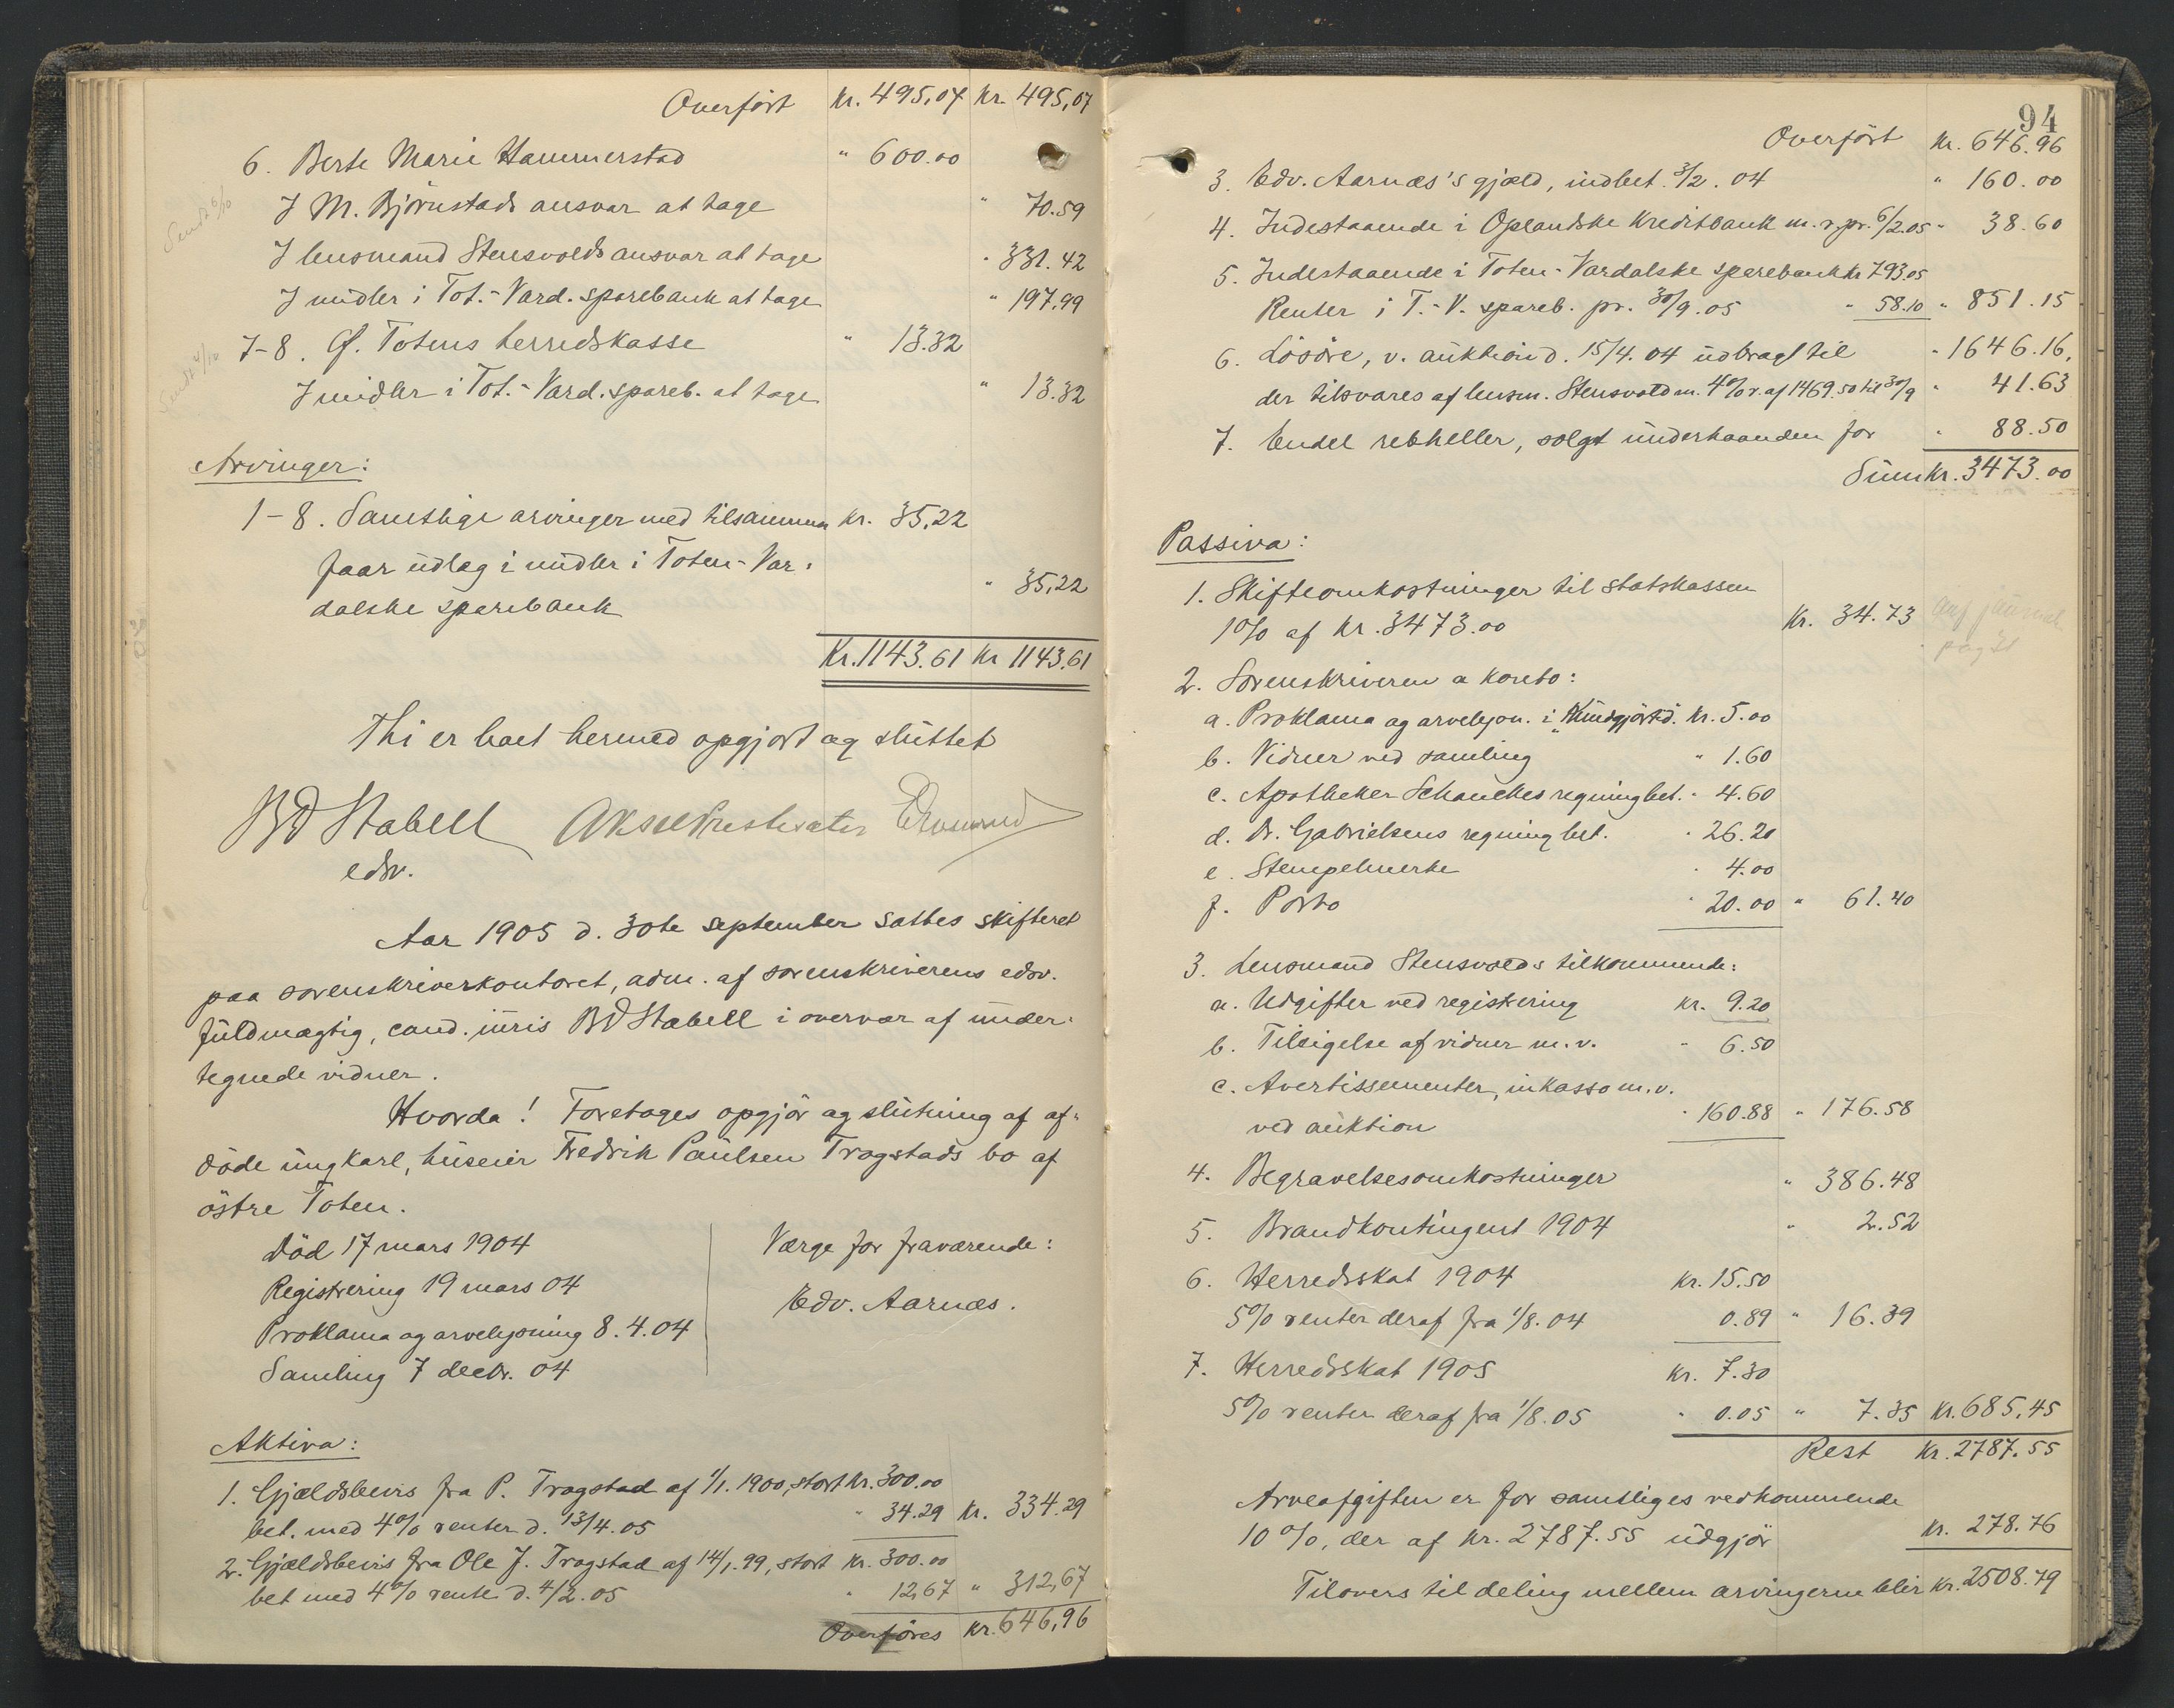 Overført Kr. 495,07 Kr. 495,07
6. Berte Marie Hammerstad " 600.00
I M. Bjørnstads ansvar at tage " 70.59
I lensmand Stensvolds ansvar at tage " 331.42
I midler i Tot.-Vard. sparebank at tage " 197.99
7-8. Ø. Totens herredskasse " 13.32
I midler i Tot.-Vard. spareb. at tage " 13.32
Arvinger:
1-8. Samtlige arvinger med tilsammen Kr. 35,22
faar udlæg i midler i Toten-Var-
dalske sparebank " 35,22
Kr. 1143.61 Kr 1143.61
Thi er boet hermed opgjort og sluttet
BD Stabell
edsv.
Aar 1905 d. 30te september sattes skifteret
paa sorenskriverkontoret, adm. af sorenskriverens edsv.
fuldmægtig, cand. juris BD Stabell i overvær af under-
tegnede vidner.
Hvorda! Foretages opgjør og slutning af af-
døde ungkarl, huseier Fredrik Paulsen Trogstads bo af
østre Toten.
Død 17 mars 1904
Registrering 19 mars 04
Proklama og arvelysning 8.4.04
Samling 7 decbr. 04
Værge for fraværende:
Edv. Aarnæs.
Aktiva:
1. Gjældsbevis fra P. Trogstad af 1/1. 1900, stort Kr. 300.00
bet. med 4% renter d. 13/4.05 " 34.29 Kr. 334.29
2. Gjældsbevis fra Ole J. Trogstad af 14/1.99, stort Kr. 300.00
bet med 4% rente d. 4/2.05 " 12,67 " 312,67
Overføres Kr. 646,96
94
Overført Kr. 646.96
3. Edv. Aarnæs's gjæld, indbet. 3/2.04 " 160.00
4. Indestaaende i Oplandske Kreditbank m.r. pr. 6/2.05 " 38.60
5. Indestaaende i Toten-Vardalske sparebank Kr 793.05
Renter i T.-V. spareb. pr. 30/9.05 " 58.10 " 851.15
6. Løsøre, v. auktion d. 15/4.04 udbragt til " 1646.16,
der tilsvares af lensm. Stensvold m. 4% r. af 1469.50 til 30/9 " 41.63
7. Endel rebheller, solgt underhaanden for " 88.50
Sum Kr. 3473.00
Passiva:
1. Skifteomkostninger til statskassen
1% af Kr. 3473.00 Kr. 34.73
2. Sorenskriveren a konto:
a. Proklama og arvelysn. i "Kundgjørtid. Kr. 5.00
b. Vidner ved samling " 1.60
c. Apotheker Schanches regning bet. " 4.60
d. Dr. Gabrielsens regning bet. " 26.20
e. Stempelmerke " 4.00
f. Porto " 20.00 " 61.40
3. Lensmand Stensvolds tilkommende:
a. Udgifter ved registrering Kr. 9.20
b. Tilsigelse af vidner m.v. " 6.50
c. Avertissementer, inkasso m.v.
ved auktion " 160.88 " 176.58
4. Begravelsesomkostninger " 386.48
5. Brandkontingent 1904 " 2.52
6. Herredsskat 1904 Kr. 15.50
5% renter deraf fra 1/8.04 0.89 " 16.39
7. Herredsskat 1905 Kr. 7.30
5% renter deraf fra 1/8.05 " 0.05 " 7.35 Kr. 685,45
Rest Kr. 2787.55
Arveafgiften er for samtliges vedkommende
10%, der af Kr. 2787.55 udgjør Kr. 278.76
Tilovers til deling mellem arvingerne blir Kr. 2508.79